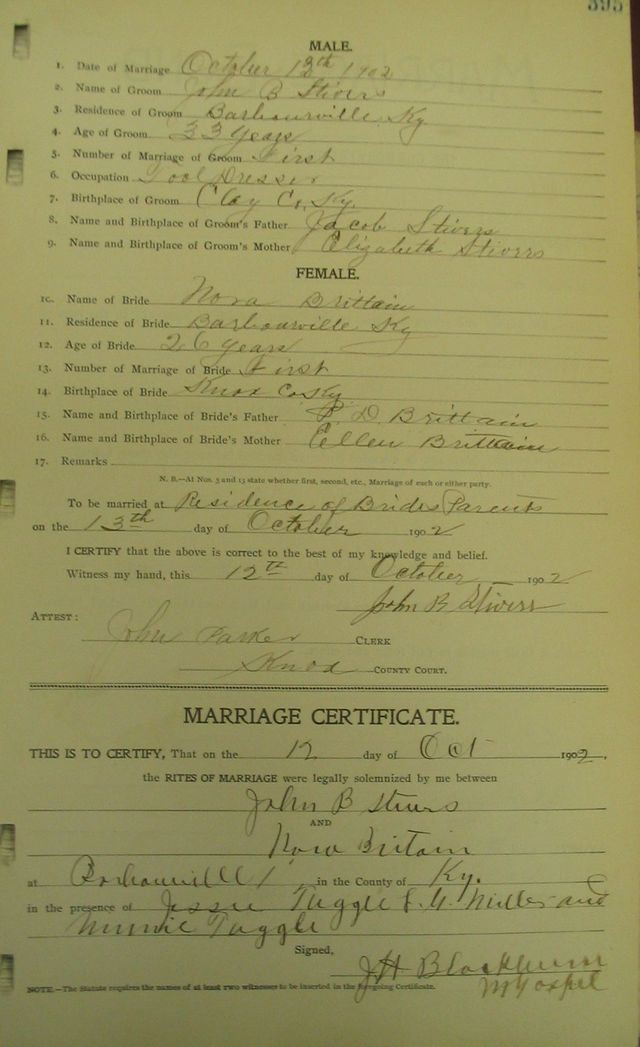 395
MALE.
1. Date of Marriage October 13th 1902
2. Name of Groom John B Stivers
3. Residence of Groom Barbourville Ky
4. Age of Groom 33 years
5. Number of Marriage of Groom First
6. Occupation Tool Dresser
7. Birthplace of Groom Clay Co, Ky.
8. Name and Birthplace of Groom's Father Jacob Stivers
9. Name and Birthplace of Groom's Mother Elizabeth Stivers
FEMALE.
10. Name of Bride Nora Brittain
11. Residence of Bride Barbourville Ky
12. Age of Bride 26 years
13. Number of Marriage of Bride First
14. Birthplace of Bride Knox Co Ky.
15. Name and Birthplace of Bride's Father D. Brittain
16. Name and Birthplace of Bride's Mother Ellen Brittain
17. Remarks
N. B.—At Nos. 5 and 13 state whether first, second, etc., Marriage of each or either party.
To be married at Residence of Brides Parents
on the 13th day of October 1902
I CERTIFY that the above is correct to the best of my knowledge and belief.
Witness my hand, this 12th day of October 1902
John B Stivers
ATTEST:
John Parker CLERK
Knox COUNTY COURT.
MARRIAGE CERTIFICATE.
THIS IS TO CERTIFY, That on the 12 day of Oct 1902.
the RITES OF MARRIAGE were legally solemnized by me between
John B Stivers
AND
Nora Britain
at Barbourville in the County of Ky.
in the presence of Jessie Tuggle Miller and
Minnie Tuggle
Signed,
J H Blackburn
M Gospel
NOTE.—The Statute requires the names of at least two witnesses to be inserted in the foregoing Certificate.